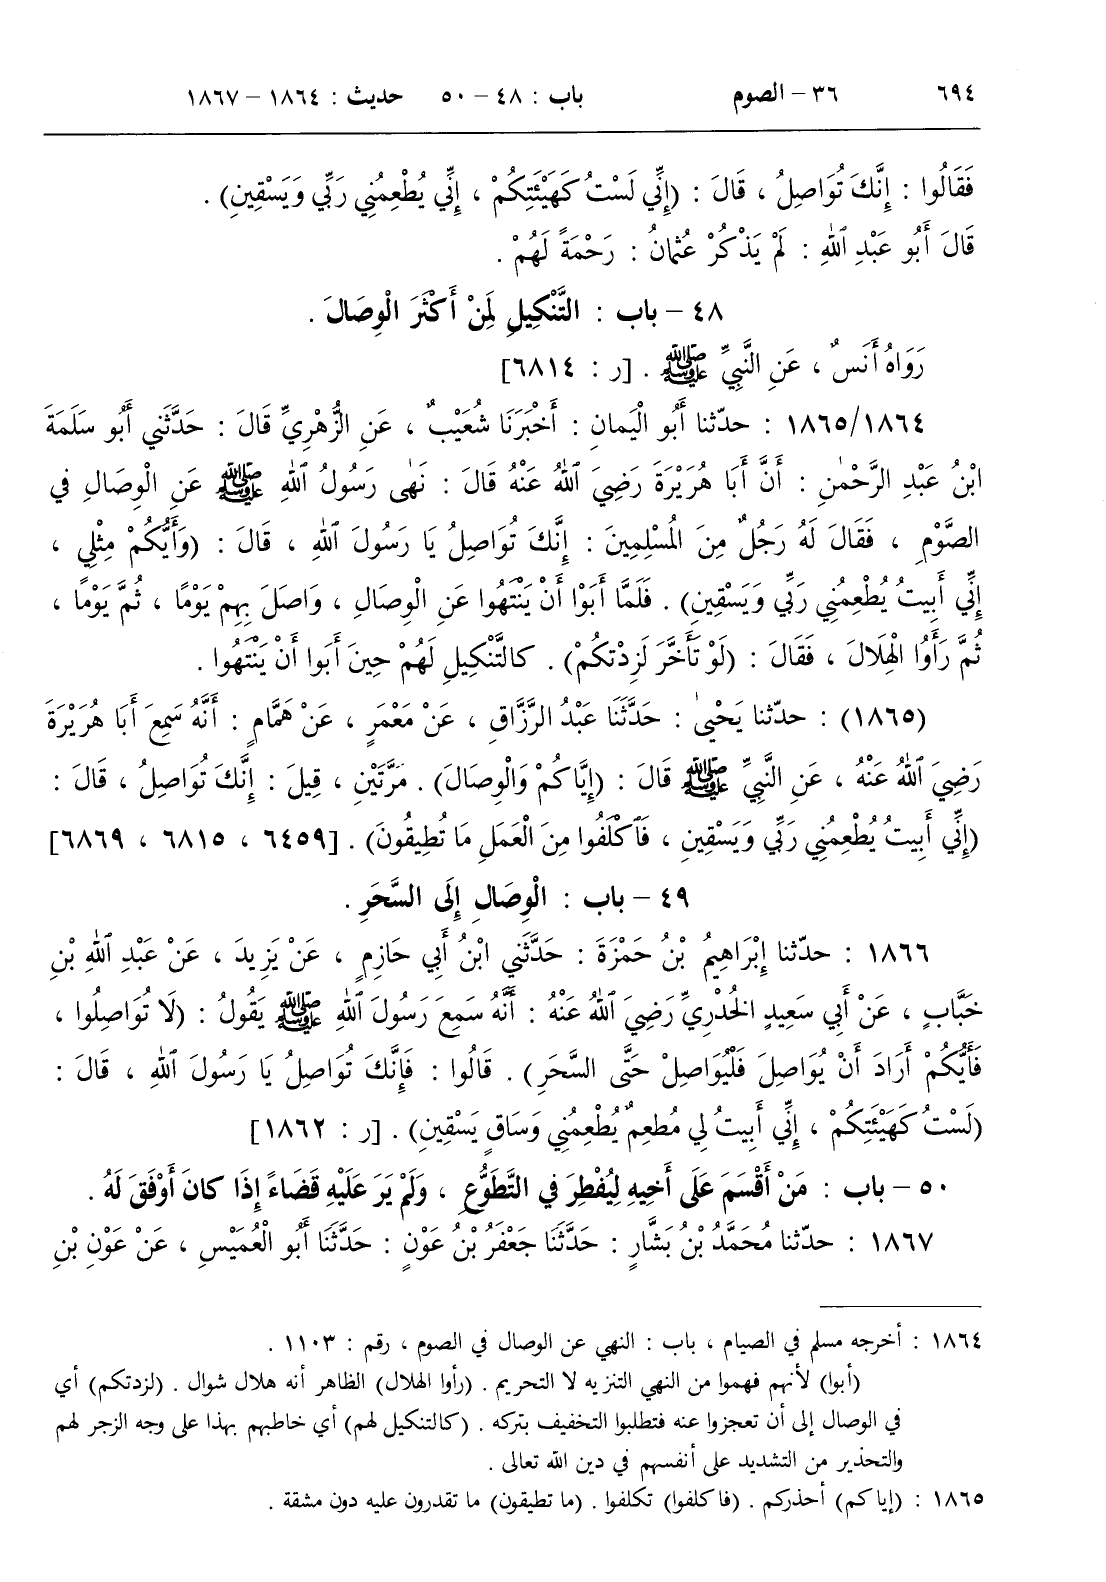 ٦٩٤ ٣٦ – الصوم باب : ٤٨ – ٥٠ حديث : ١٨٦٤ – ١٨٦٧
فَقَالُوا : إِنَّكَ تُوَاصِلُ ، قَالَ : (إِنِّي لَسْتُ كَهَيْئَتِكُمْ ، إِنِّي يُطْعِمُنِي رَبِّي وَيَسْقِينِ) .
قَالَ أَبُو عَبْدِ ٱللهِ : لَمْ يَذْكُرْ عُثْمانُ : رَحْمَةً لَهُمْ .
٤٨ – باب : التَّنْكِيلِ لِمَنْ أَكْثَرَ الْوِصَالَ .
رَوَاهُ أَنَسٌ ، عَنِ النَّبِيِّ ﷺ . [ر : ٦٨١٤]
١٨٦٥/١٨٦٤ : حدّثنا أَبُو الْيَمانِ : أَخْبَرَنَا شُعَيْبٌ ، عَنِ الزُّهْرِيِّ قَالَ : حَدَّثَنِي أَبُو سَلَمَةَ
ابْنُ عَبْدِ الرَّحْمٰنِ : أَنَّ أَبَا هُرَيْرَةَ رَضِيَ ٱللهُ عَنْهُ قَالَ : نَهٰى رَسُولُ ٱللهِ ﷺ عَنِ الْوِصَالِ فِي
الصَّوْمِ ، فَقَالَ لَهُ رَجُلٌ مِنَ الْمُسْلِمِينَ : إِنَّكَ تُوَاصِلُ يَا رَسُولَ ٱللهِ ، قَالَ : (وَأَيُّكُمْ مِثْلِي ،
إِنِّي أَبِيتُ يُطْعِمُنِي رَبِّي وَيَسْقِينِ) . فَلَمَّا أَبَوْا أَنْ يَنْتَهُوا عَنِ الْوِصَالِ ، وَاصَلَ بِهِمْ يَوْمًا ، ثُمَّ يَوْمًا ،
ثُمَّ رَأَوُا الْهِلَالَ ، فَقَالَ : (لَوْ تَأَخَّرَ لَزِدْتكُمْ) . كالتَّنْكِيلِ لَهُمْ حِينَ أَبَوا أَنْ يَنْتَهُوا .
(١٨٦٥) : حدّثنا يَحْيىٰ : حَدَّثَنَا عَبْدُ الرَّزَّاقِ ، عَنْ مَعْمَرٍ ، عَنْ هَمَّامٍ : أَنَّهُ سَمِعَ أَبَا هُرَيْرَةَ
رَضِيَ ٱللهُ عَنْهُ ، عَنِ النَّبِيِّ ﷺ قَالَ : (إِيَّاكُمْ وَالْوِصَالَ) . مَرَّتَيْنِ ، قِيلَ : إِنَّكَ تُوَاصِلُ ، قَالَ :
(إِنِّي أَبِيتُ يُطْعِمُنِي رَبِّي وَيَسْقِينِ ، فَٱكْلَفُوا مِنَ الْعَمَلِ مَا تُطِيقُونَ) . [٦٤٥٩ ، ٦٨١٥ ، ٦٨٦٩]
٤٩ – باب : الْوِصَالِ إِلَى السَّحَرِ .
١٨٦٦ : حدّثنا إِبْرَاهِيمُ بْنُ حَمْزَةَ : حَدَّثَنِي ابْنُ أَبِي حَازِمٍ ، عَنْ يَزِيدَ ، عَنْ عَبْدِ ٱللهِ بْنِ
خَبَّابٍ ، عَنْ أَبِي سَعِيدٍ الخُدْرِيِّ رَضِيَ ٱللهُ عَنْهُ : أَنَّهُ سَمِعَ رَسُولَ ٱللهِ ﷺ يَقُولُ : (لَا تُوَاصِلُوا ،
فَأَيُّكُمْ أَرَادَ أَنْ يُوَاصِلَ فَلْيُوَاصِلْ حَتَّى السَّحَرِ) . قَالُوا : فَإِنَّكَ تُوَاصِلُ يَا رَسُولَ ٱللهِ ، قَالَ :
(لَسْتُ كَهَيْئَتِكُمْ ، إِنِّي أَبِيتُ لِي مُطْعِمٌ يُطْعِمُنِي وَسَاقٍ يَسْقِينِ) . [ر : ١٨٦٢]
٥٠ – باب : مَنْ أَقْسَمَ عَلَى أَخِيهِ لِيُفْطِرَ فِي التَّطَوُّعِ ، وَلَمْ يَرَ عَلَيْهِ قَضَاءً إِذَا كانَ أَوْفَقَ لَهُ .
١٨٦٧ : حدّثنا مُحَمَّدُ بْنُ بَشَّارٍ : حَدَّثَنَا جَعْفَرُ بْنُ عَوْنٍ : حَدَّثَنَا أَبُو الْعُمَيْسِ ، عَنْ عَوْنِ بْنِ
١٨٦٤ : أخرجه مسلم في الصيام ، باب : النهي عن الوصال في الصوم ، رقم : ١١٠٣ .
(أبوا) لأنهم فهموا من النهي التنزيه لا التحريم . (رأوا الهلال) الظاهر أنه هلال شوال . (لزدتكم) أي
في الوصال إلى أن تعجزوا عنه فتطلبوا التخفيف بتركه . (كالتنكيل لهم) أي خاطبهم بهذا على وجه الزجر لهم
والتحذير من التشديد على أنفسهم في دين الله تعالى .
١٨٦٥ : (إياكم) أحذركم . (فاكلفوا) تكلفوا . (ما تطيقون) ما تقدرون عليه دون مشقة .